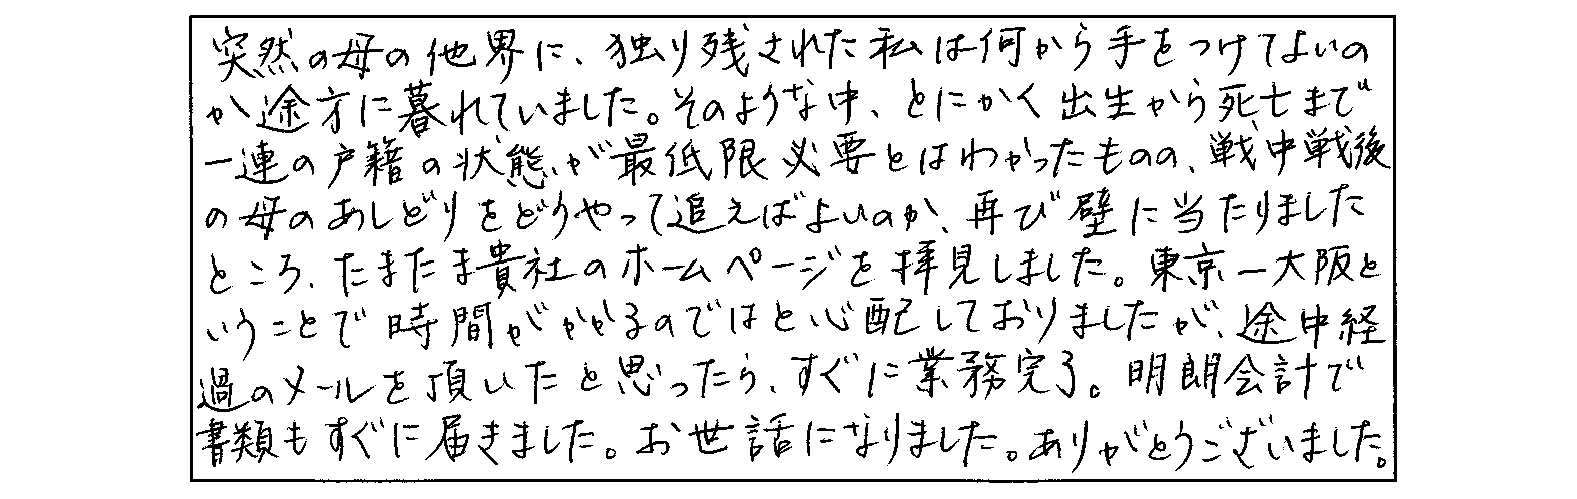 突然の母の他界に、独り残された私は何から手をつけてよいの
か途方に暮れていました。そのような中、とにかく出生から死亡まで
一連の戸籍の状態が最低限必要とはわかったものの、戦中戦後
の母のあしどりをどうやって追えばよいのか、再び壁に当たりました
ところ、たまたま貴社のホームページを拝見しました。東京―大阪と
いうことで時間がかかるのではと心配しておりましたが、途中経
過のメールを頂いたと思ったら、すぐに業務完了。明朗会計で
書類もすぐに届きました。お世話になりました。ありがとうございました。